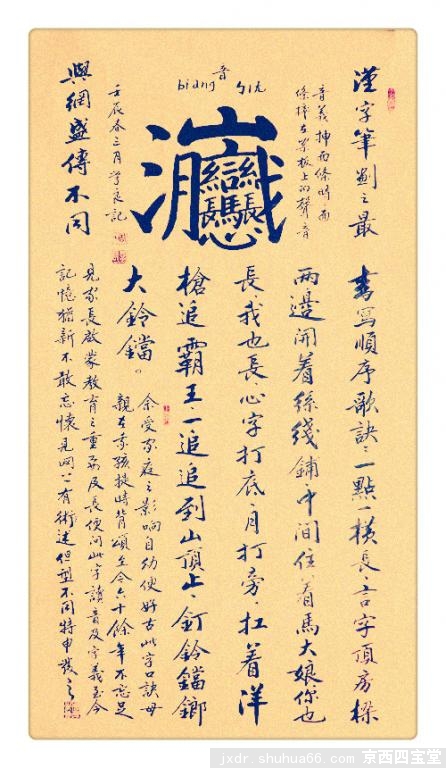 漢字筆劃之最
音義抻面條時面
條摔在案板上的聲音
音
biang ㄅㄧㄤ
壬辰春三月学良記
與網盛傳不同
書寫順序歌訣:一點一橫長,言字頂房樑
兩邊開着絲綫鋪,中間住着馬大娘你也
長,我也長,心字打底,月打旁,扛着洋
槍追霸王,一追追到山頂上,釘鈴鐺鎯
大鈴鐺。
余受家庭之影响自幼便好古此字口訣母
親在余孩提時背頌至今六十餘年不忘足
見家長啟蒙教育之重要及長便問此字讀音及字義至今
記憶猶新不敢忘懷見网上有術述但型不同特申
jxdr.shuhua66.com 京西四宝堂